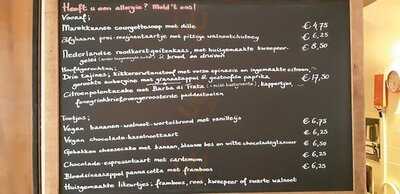 Heeft u een allergie? Meld 't ons!
Vooraf;
Marokkaanse courgettesoep met dille € 4,75
Afghaans prei-masgnetaartjes met pittige walnootchutney € 6,25
Nederlandse roodkorstgeitenkaas, met huisgemaakte kweepeer-
gelei & brood, en druiven € 8,50
Hoofdgerechten;
Drie tajines; kikkererwtenstoof met verse spinazie en ingemaakte citroen,
geroosterde aubergine met granaatappel & gestoofde paprika € 17,50
Citroenpolentacake met Barba di Frata, kappertjes,
geroosterde paddestoelen
Toetjes;
Vegan bananen-walnoot-wortelbrood met vanilleijs € 6,75
Vegan chocolade-hazelnoottaart € 6,25
Gebakken cheesecake met banaan, blauwe bes en witte chocoladeglazuur € 6,50
Chocolade-espressotaart met cardemom € 6,25
Bloedsinaasappel panna cotta met framboos € 6,25
Huisgemaakte likeurtjes; framboos, roos, kweepeer of zwarte walnoot